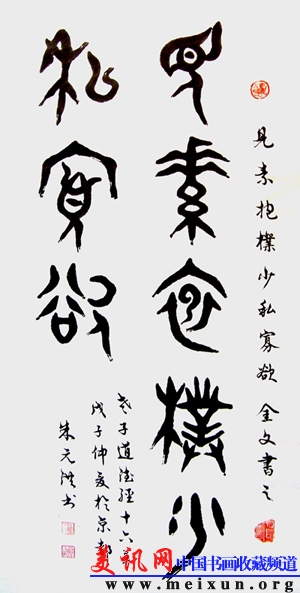 見素抱樸少私寡欲 金文書之
見素抱樸少
私寡欲
老子道德經十六
戊子仲夏於京都
朱元洪书
美讯网 中国书画收藏频道
www.meixun.org